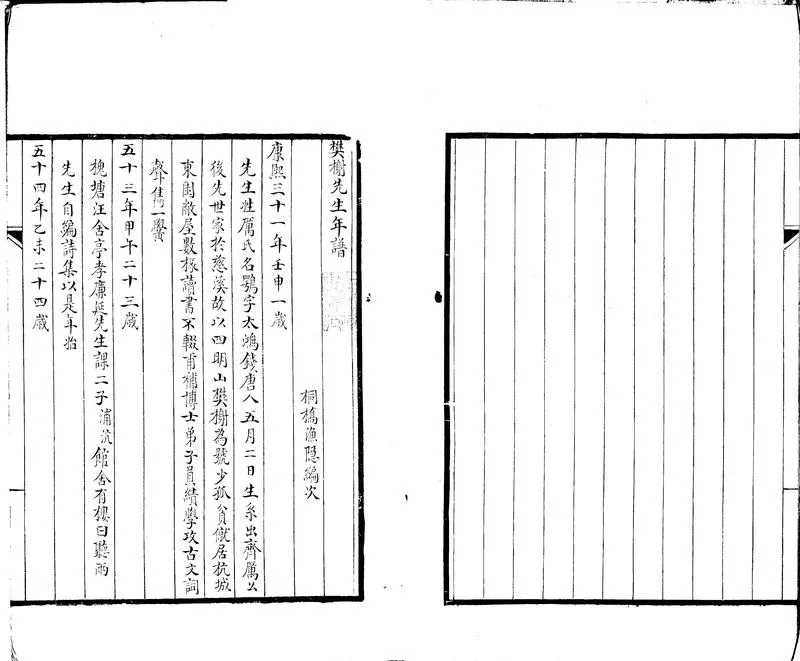 樊榭先生年譜
桐橋漁隱編次
康熙三十一年壬申一歲
先生姓厲氏名鶚字太鴻錢唐人五月二日生系出齊厲公
後先世家於慈溪故以四明山樊榭為號少孤貧僦居杭城
東園敝屋數椽讀書不輟甫補博士弟子員績學攻古文詞
聲雋一黌
五十三年甲午二十三歲
槐塘汪舍亭孝廉延先生課二子浦沆館舍有樓曰聽雨
先生自編詩集以是年始
五十四年乙未二十四歲